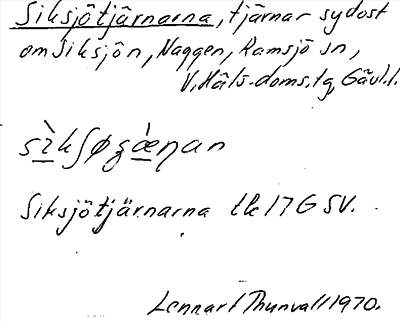 Siksjötjärnarna, tjärnar sydost
om Siksjön, Naggen, Ramsjö sn,
V. Häls. doms.lg, Gävl.l.
sìkʃøʒæ̀ṇan
Siksjötjärnarna tk 17G SV.
Lennart Thunvall 1970.